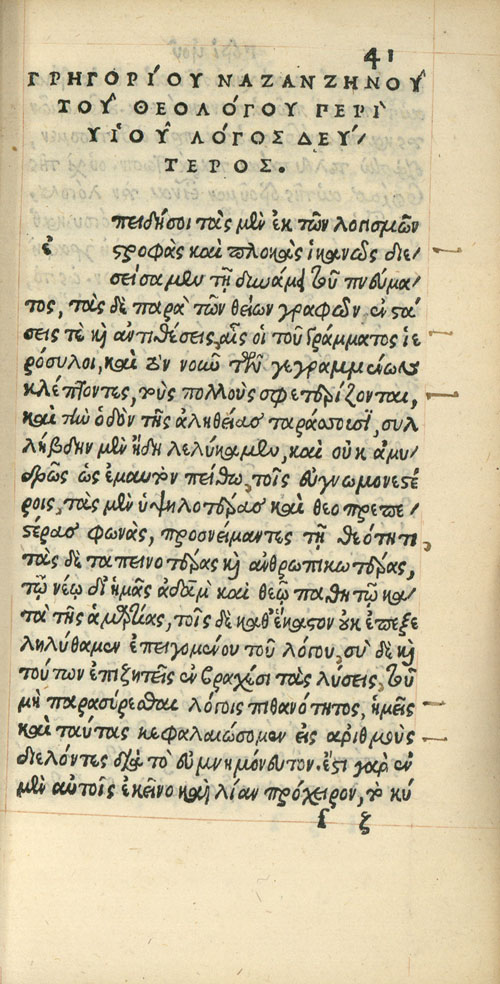 41
ΓΡΗΓΟΡΊΟΥ ΝΑΖΑΝΖΗΝΟΥ͂
ΤΟΥ͂ ΘΕΟΛΌΓΟΥ ΠΕΡῚ
ΥἹΟΥ͂ ΛΌΓΟΣ ΔΕΎ/
ΤΕΡΟΣ.
πειδήσοι τὰς μὲν ἐκ τῶν λογισμῶν
ἐ στροφὰς καὶ πλοκὰς ἱκανῶς διε/
σείσαμεν τῇ δυνάμει τοῦ πνεύμα/
τος, τὰς δὲ παρὰ τῶν θείων γραφῶν ἐνστά/
σεις τὲ καὶ ἀντιθέσεις, αἷς οἱ τοῦ γράμματος ἱε
ρόσυλοι, καὶ τὸν νοῦν τῶν γεγραμμένων
κλέπτοντες, τοὺς πολλοὺς σφετερίζονται,
καὶ τὴν ὁδὸν τῆς ἀληθείας ταράσσουσι, συλ
λήβδην μὲν ἤδη λελύκαμεν, καὶ οὐκ ἀμυ/
δρῶς ὡς ἐμαυτὸν πείθω, τοῖς εὐγνωμονεστέ
ροις, τὰς μὲν ὑψηλοτέρας καὶ θεοπρεπε/
στέρας φωνὰς, προσνείμαντες τῇ θεότητι
τὰς δὲ ταπεινοτέρας καὶ ἀνθρωπικωτέρας,
τῷ νέῳ δι' ἡμᾶς ἀδὰμ καὶ θεῷ παθητῷ κα/
τὰ τῆς ἁμαρτίας, τοῖς δὲ καθ' ἕκαστον οὐκ ἐπεξε
ληλύθαμεν ἐπειγομένου τοῦ λόγου, σὺ δὲ καὶ
τούτων ἐπιζητεῖς ἐν βραχέσι τὰς λύσεις, τοῦ
μὴ παρασύρεσθαι λόγοις πιθανότητος, ἡμεῖς
καὶ ταύτας κεφαλαιώσομεν εἰς ἀριθμοὺς
διελόντες διὰ τὸ εὐμνημόνευτον. ἔστι γὰρ ἓν
μὲν αὐτοῖς ἐκεῖνο καὶ λίαν πρόχειρον, τὸ κύ
f ζ